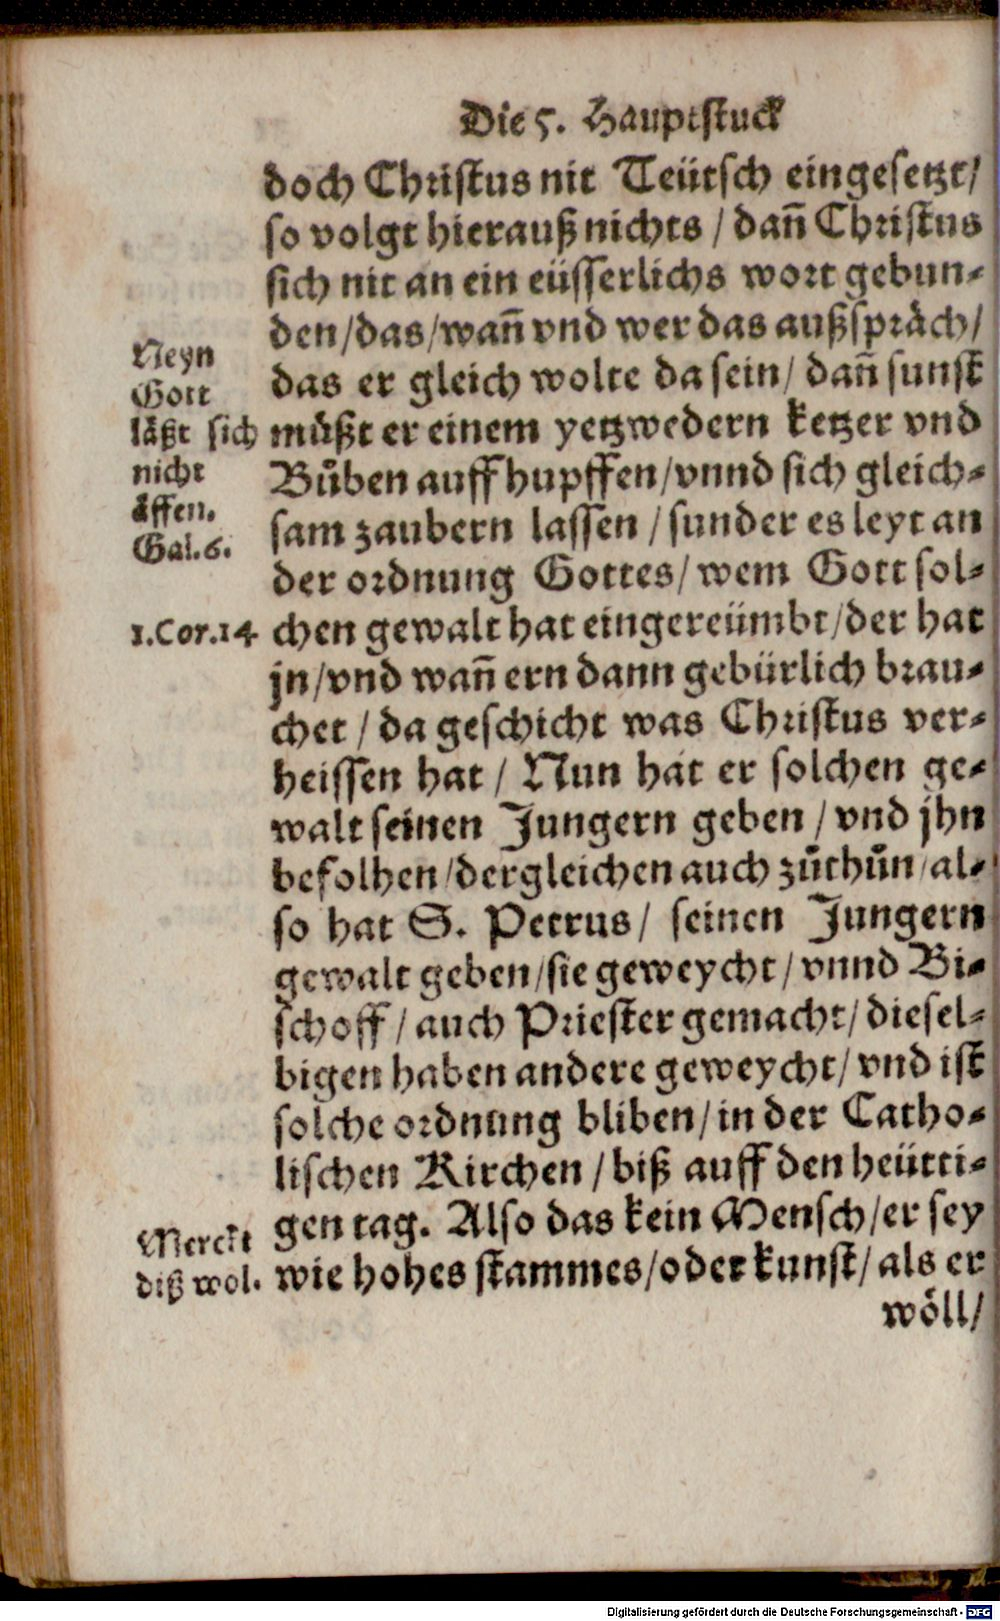 Die 5. Hauptstuck
doch Christus nit Teütsch eingesetzt/
so volgt hierauß nichts / dañ Christus
sich nit an ein eüsserlichs wort gebun-
den/das/wañ vnd wer das außspräch/
das er gleich wolte da sein/ dañ sunst
müßt er einem yetzwedern ketzer vnd
Bůben auff hupffen/vnnd sich gleich-
sam zaubern lassen / sunder es leyt an
der ordnung Gottes/ wem Gott sol-
chen gewalt hat eingereümbt/der hat
jn/vnd wañ ern dann gebürlich brau-
chet / da geschicht was Christus ver-
heissen hat / Nun hat er solchen ge-
walt seinen Jungern geben / vnd jhn
befolhen/dergleichen auch zůthůn/al-
so hat S. Petrus/ seinen Jungern
gewalt geben/sie geweycht/ vnnd Bi-
schoff / auch Priester gemacht/ diesel-
bigen haben andere geweycht/ vnd ist
solche ordnung bliben/ in der Catho-
lischen Kirchen / biß auff den heütti-
gen tag. Also das kein Mensch/er sey
wie hohes stammes/oder kunst/ als er
wöll/
Neyn
Gott
läßt sich
nicht
äffen.
Gal.6.
1.Cor.14
Merckt
diß wol.
Digitalisierung gefördert durch die Deutsche Forschungsgemeinschaft - DFG